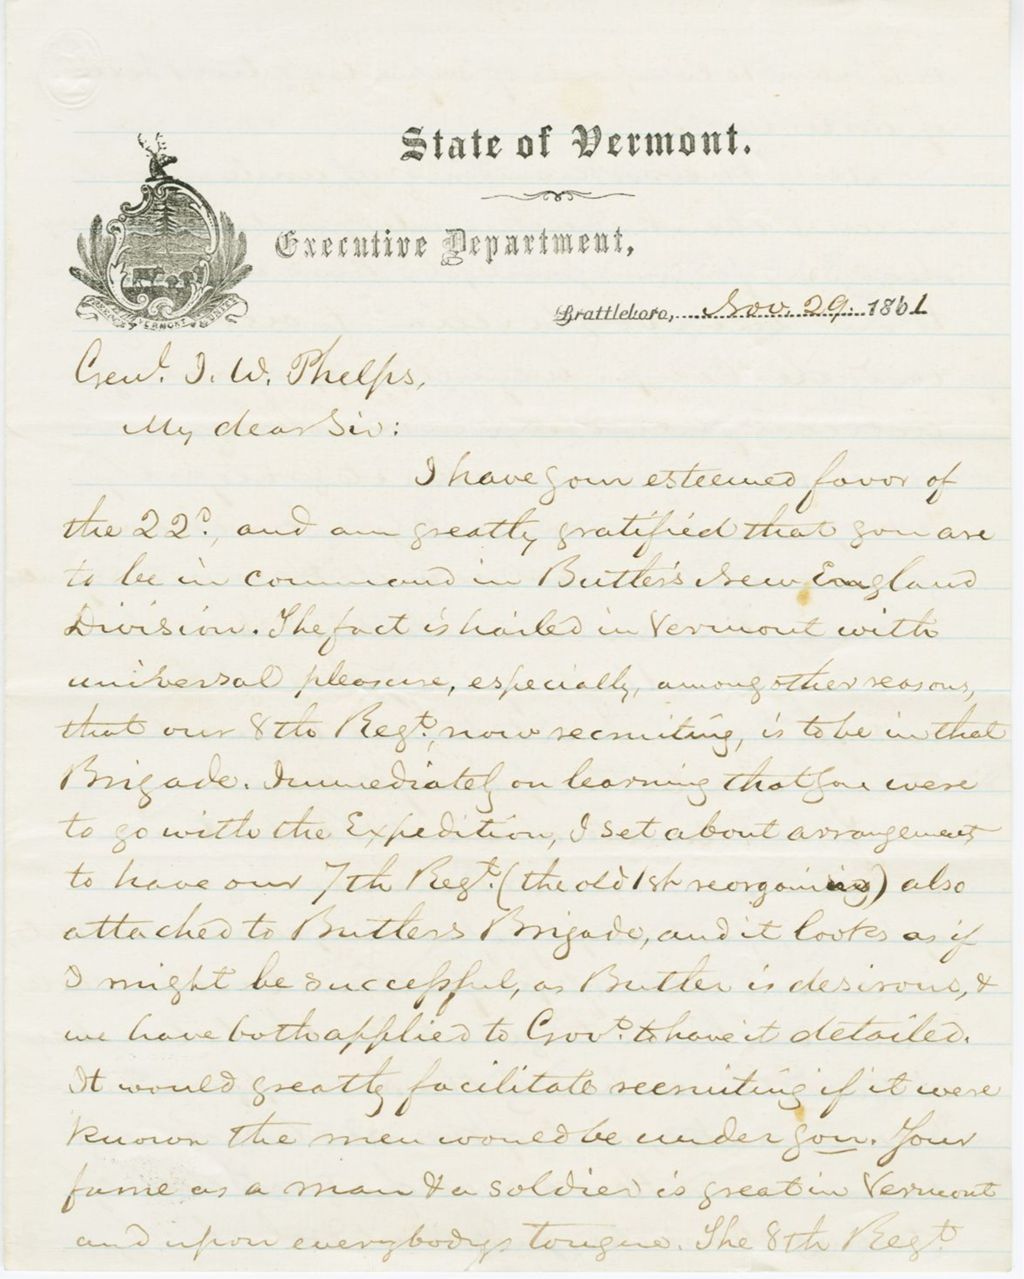 State of Vermont.
Executive Department,
Brattleboro, Nov. 29. 1861
FREEDOM VERMONT & UNITY
Genl. J. W. Phelps,
My dear Sir:
I have your esteemed favor of
the 22d, and am greatly gratified that you are
to be in command in Butler's New England
Division. The fact is hailed in Vermont with
universal pleasure, especially, among other reasons,
that our 8th Regt, now recruiting, is to be in that
Brigade. Immediately on learning that you were
to go with the Expedition, I set about arrangements
to have our 7th Regt. (the old 1st reorganizing) also
attached to Butler's Brigade, and it looks as if
I might be successful, as Butler is desirous, &
we have both applied to Govt. to have it detailed.
It would greatly facilitate recruiting if it were
known the men would be under you. Your
fame as a man & a soldier is great in Vermont
and upon everybody's tongue. The 8th Regt